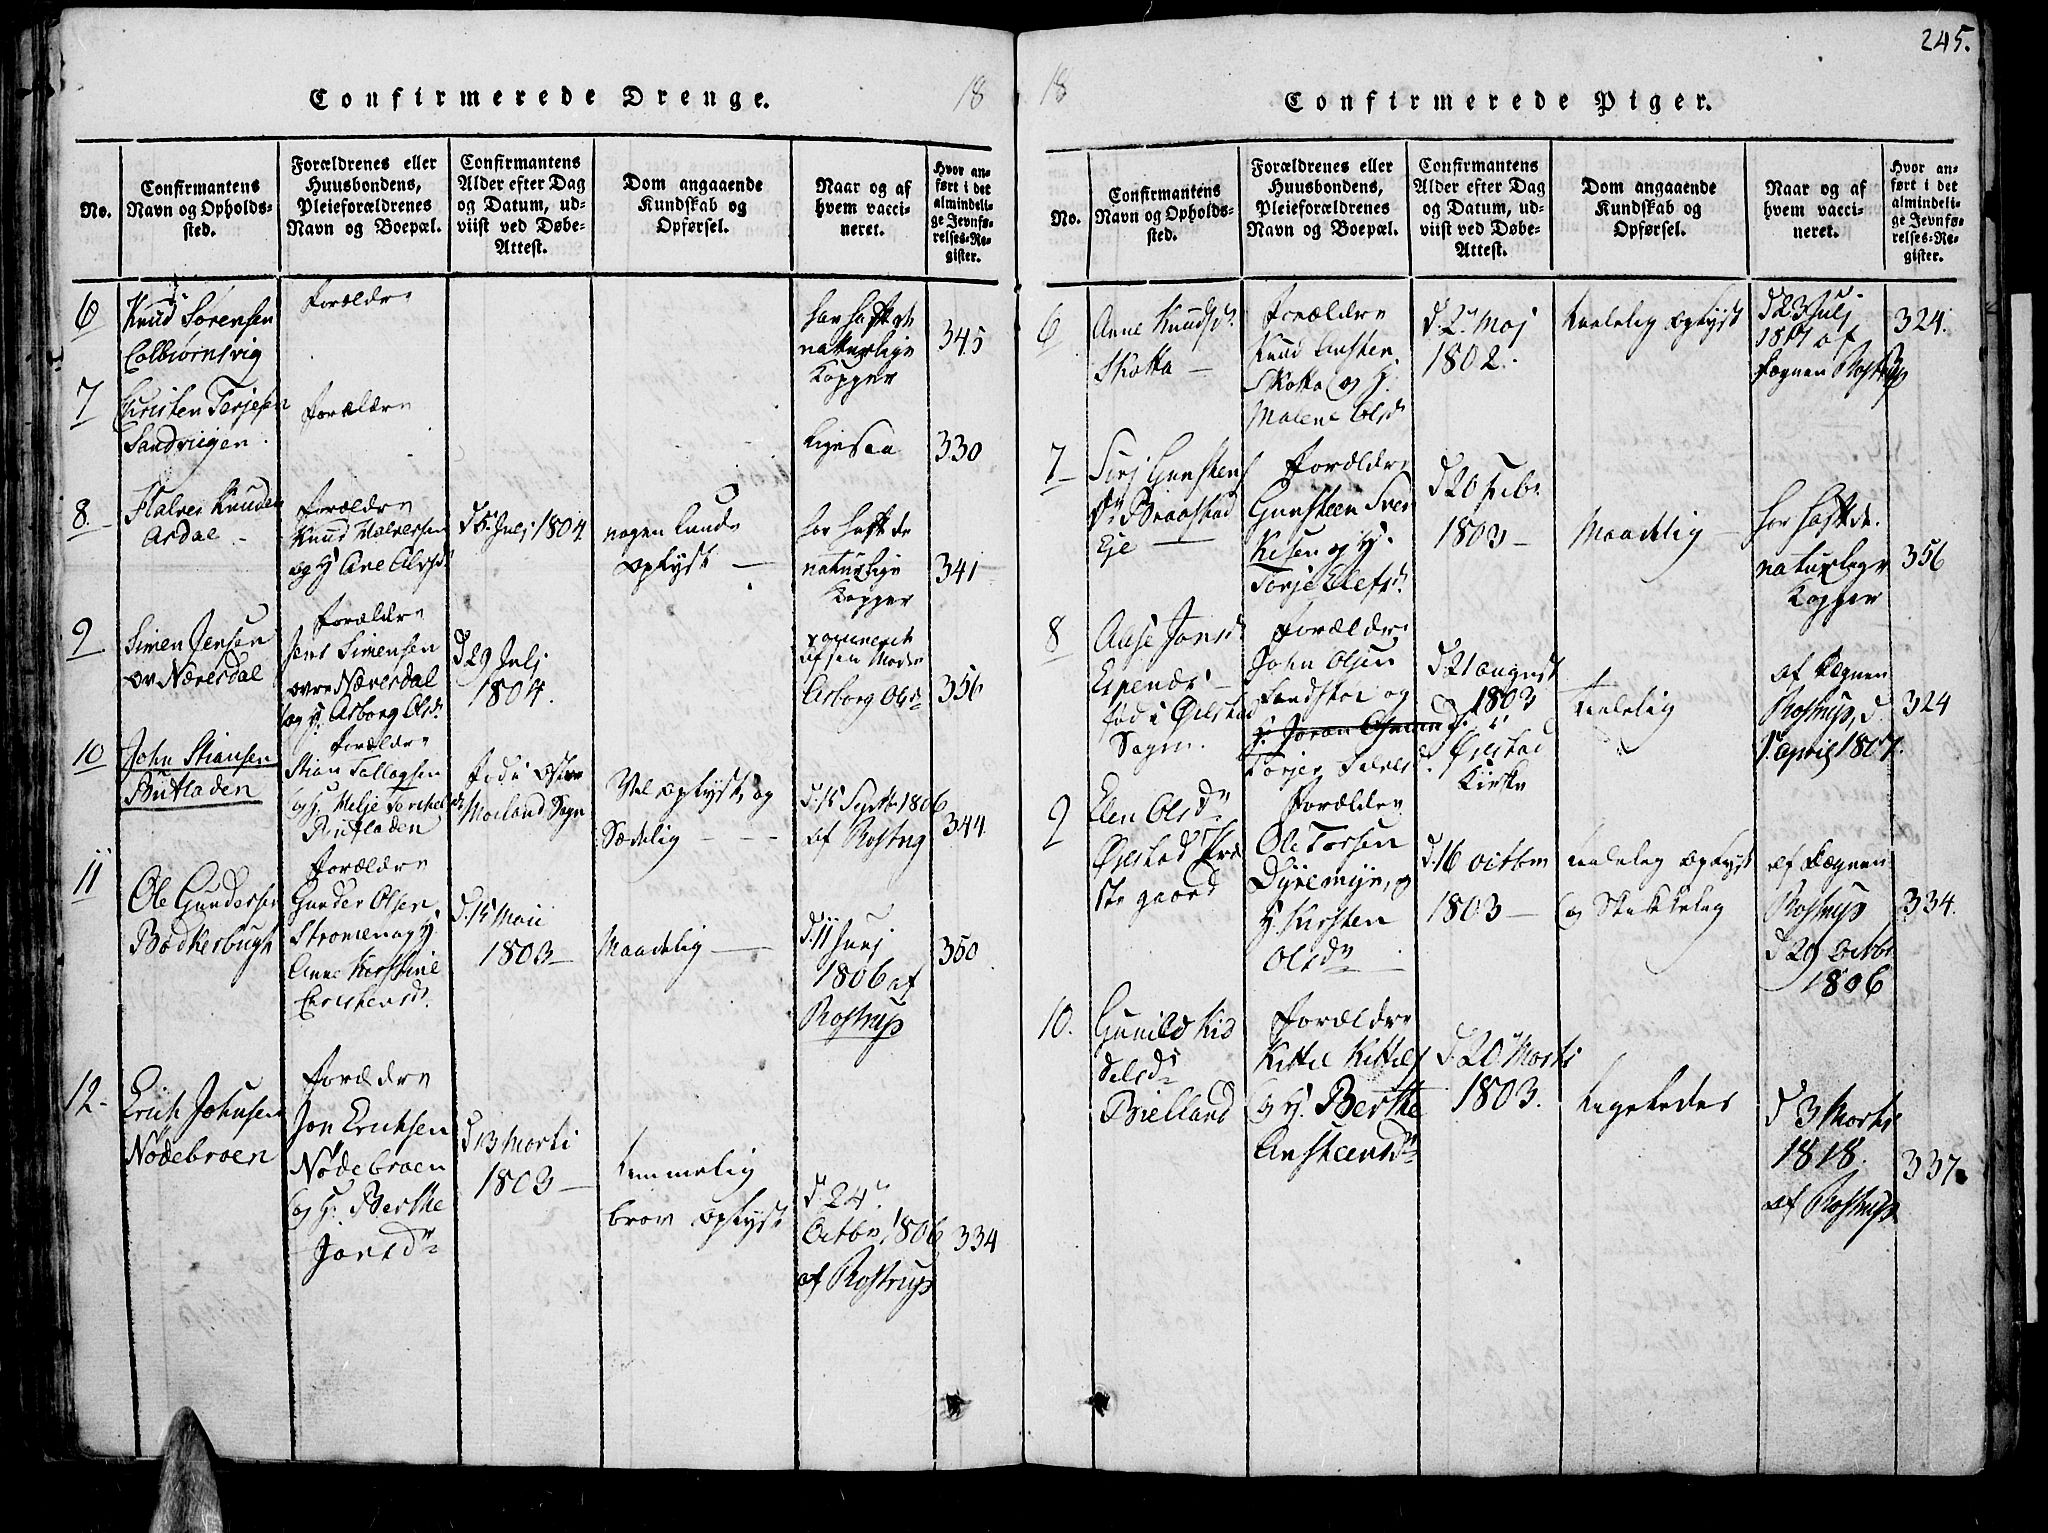 245.
Confirmerede Drenge.
18
No.
Confirmantens
Navn og Opholds-
sted.
Forældrenes eller
Huusbondens,
Pleieforældrenes
Navn og Boepæl.
Confirmantens
Alder efter Dag
og Datum, ud-
viist ved Døbe-
Attest.
Dom angaaende
Kundskab og
Opførsel.
Naar og af
hvem vacci-
neret.
Hvor an-
ført i det
almindeli-
ge Jevnfø-
relses-Re-
gister.
6
Knud Sørensen
Colbiørnsvig
Forældre
har haft de
naturlige
Kopper
345
7
Christen Terjesen
Sandviigen
Forældre
ligesaa
330
8.
Halvor Knudsen
Asdal
Forældre
Knud Halvorsen
og H. Ane
Juli 1804
nogenlunde
oplyst
har haft de
naturlige
Kopper
341
9
Simen Jensen
ov Næresdal
Forældre
Jens Simensen
ovre Næresdal
og H. Asborg Olsdr
d 29 Juli
1804.
vaccineret
af sin Moder
Asborg Olsdr
356
10
John Stiansen
Butladen
Forældre
Stian Tallagsen
og H. Helje Terkels dr
Butladen
født i Østre
Moeland Sogn
Vel oplyst, og
Sædelig
d. 15 Septbr 1806
af Rostrup
344
11
Ole Gundersen
Bødkerbugt
Forældre
Gunder Olsen
Strømen og H.
Anne Kirstine
Christensdr.
d. 15 Maii
1803
Maadelig
d. 11 Junj
1806 af
Rostrup
350
12
Erich Johnsen
Nødebroen
Forældre
Jon Erichsen
Nødebroen
og H. Berthe
Jonsdr
d 13 Marti
1803
temmelig
brav oplyst
d. 24
Octbr 1806
af Rostrup
334
18
Confirmerede Piger.
No.
Confirmantens
Navn og Opholds-
sted.
Forældrenes eller
Huusbondens,
Pleieforældrenes
Navn og Boepæl.
Confirmantens
Alder efter Dag
og Datum, ud-
viist ved Døbe-
Attest.
Dom angaaende
Kundskab og
Opførsel.
Naar og af
hvem vacci-
neret.
Hvor an-
ført i det
almindeli-
ge Jevnfø-
relses-Re-
gister.
6
Anne Knudsdr.
Skotta
Forældre
Knud Ansten.
Skotta og H.
Malene Olsdr
d. 2 Maj
1802.
taalelig oplyst
d 23 Julj
af
Degnen Rostrup
324.
7
Sirj Gunstens
dr Braastad
Eje
Forældre
Gunsteen Sver
Kesen og H.
Torje Elefsdr.
d 20 Febr.
1803
Maadelig
har haft de
naturlige
Kopper
356
8
Aase Jonsdr
Espenæs
fød i Øiestad
Sogn.
Forældre
John Olsen
og
Torjer
d. 21 August
1803
i
Øiestad
Kirke
taalelig
af Degnen
Rostrup, d.
april 1807.
324
9
Elen Olsdr
Øiestad Præ
ste gaard
Forældre
Ole Torsen
Dyremyr, og
H. Kirsten
Olsdr
d. 16 octbr
1803
taalelig oplyst
og Skikkelig
af Degnen
Rostrup
d 29 Octbr
1806
334.
10.
Gunild Kid
delsdr
Bielland
Forældre
Kittil Kittils
og H. Berthe
Ansteensdr
d. 20 Marti
1803.
ligeledes
d 3 Marti
1818.
af Rostrup
337.